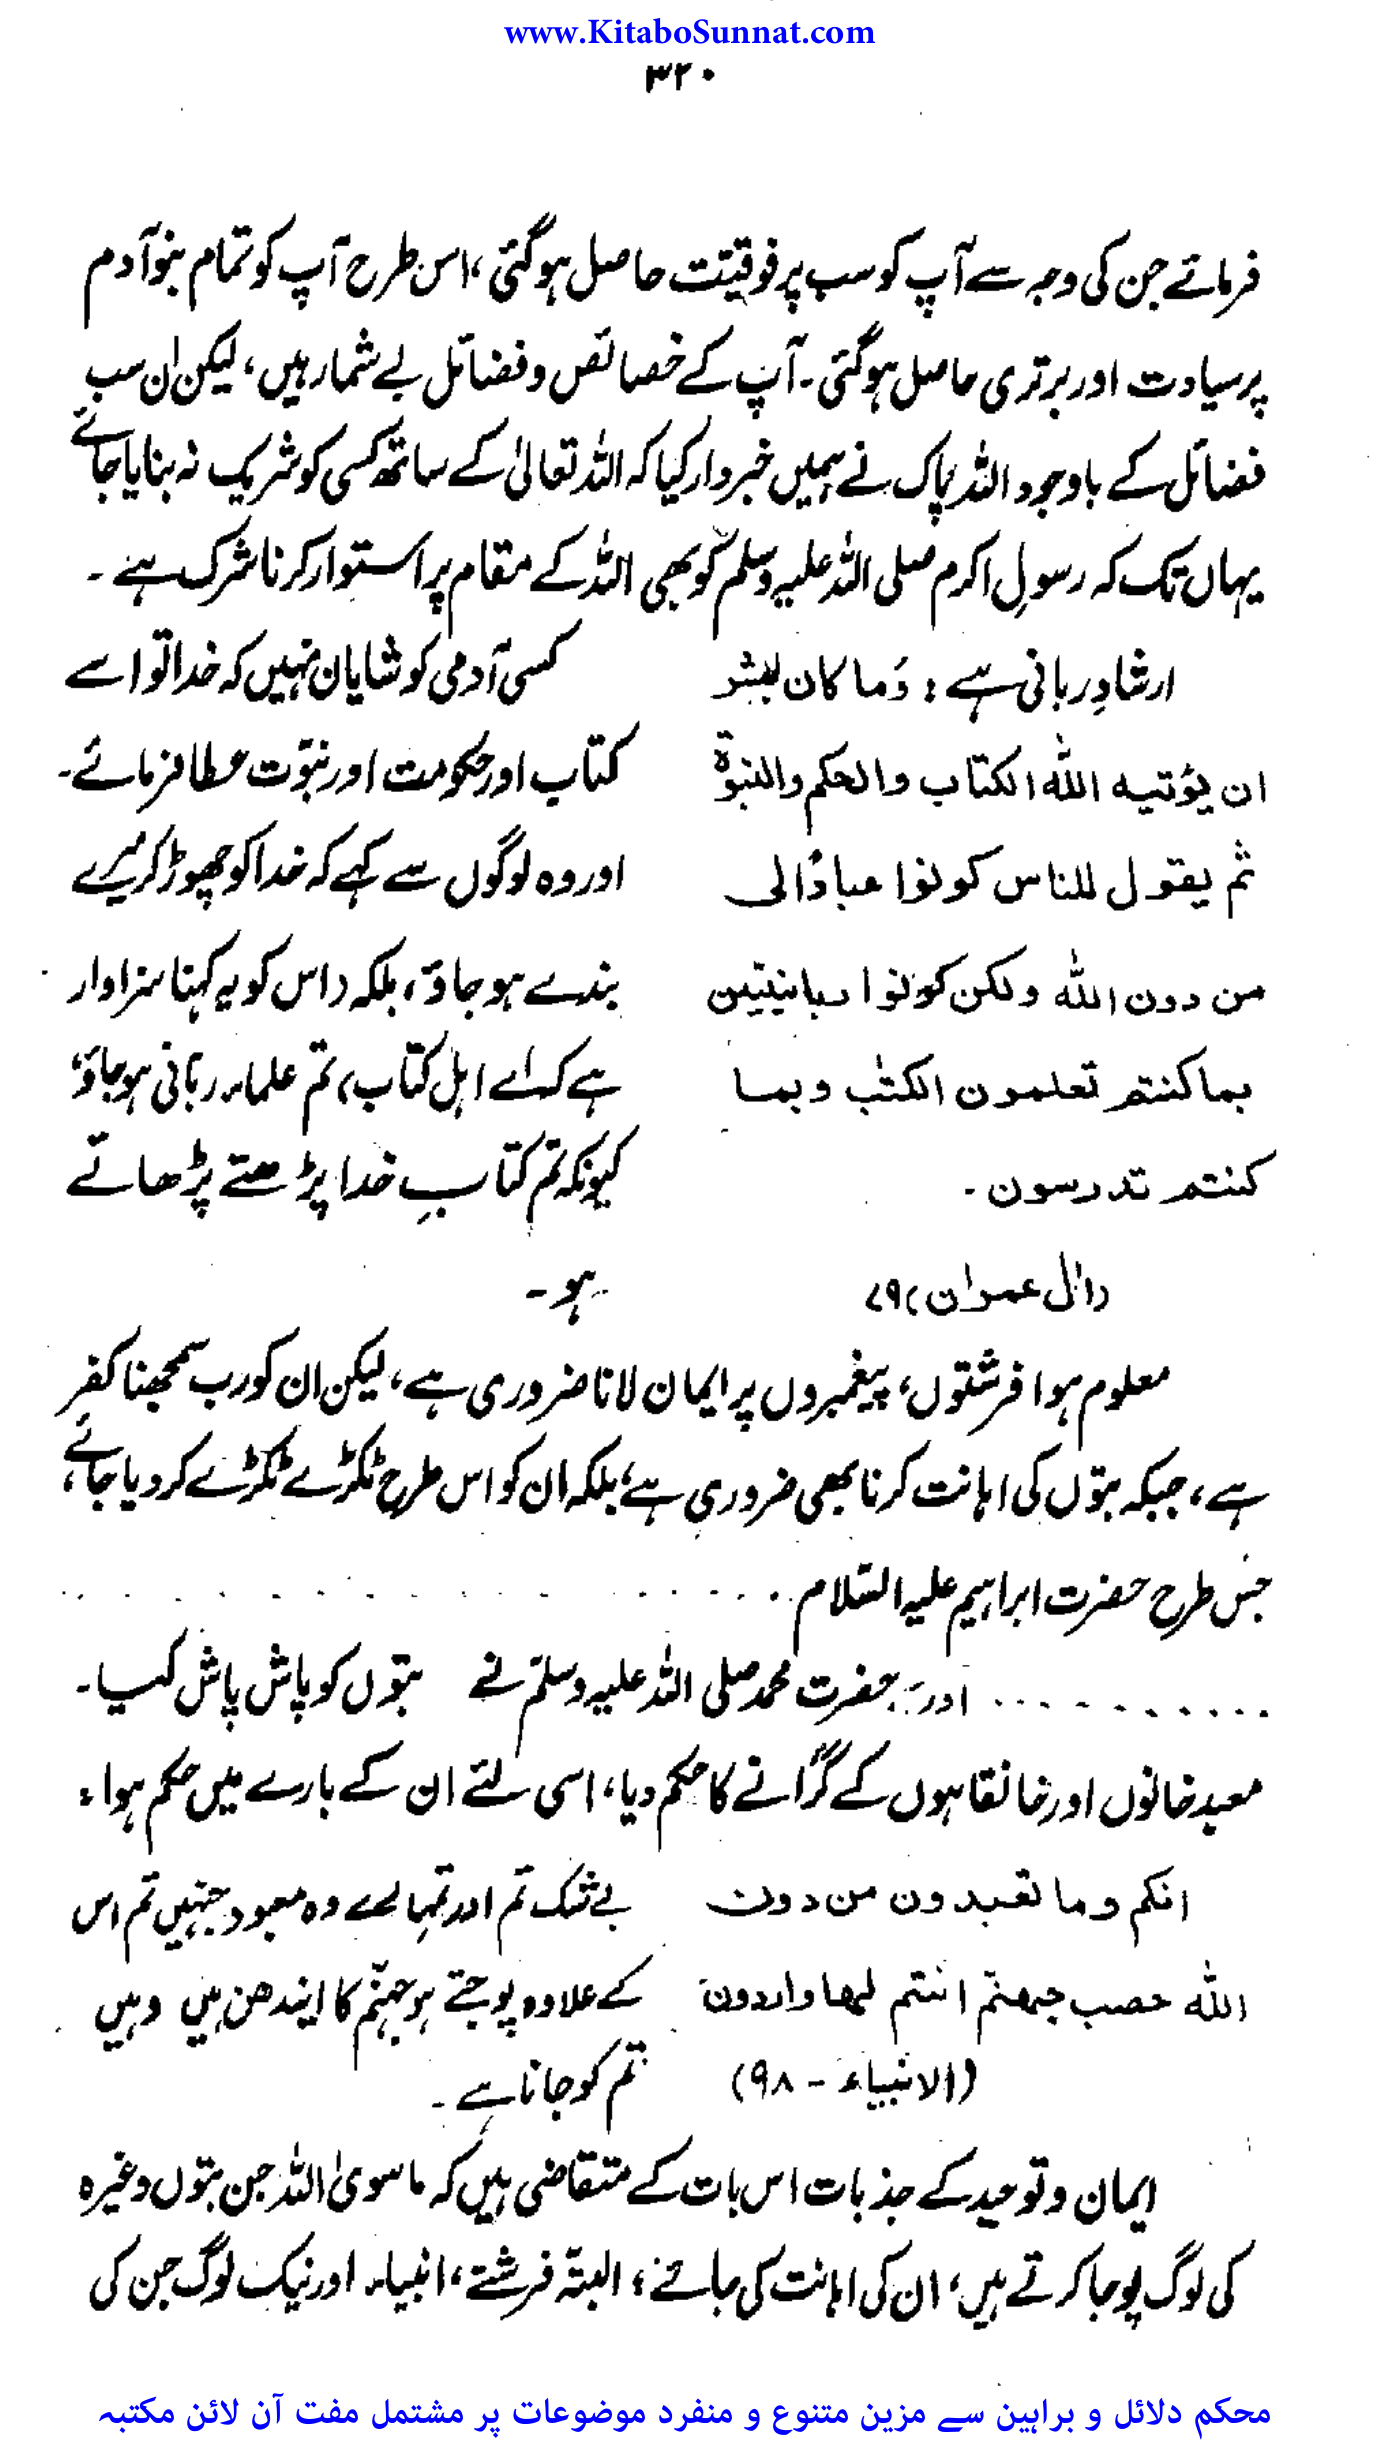 www.KitaboSunnat.com
۳۲۰
فرمائے جن کی وجہ سے آپ کو سب پر فوقیت حاصل ہوگئی، اس طرح آپ کو تمام بنو آدم
پر سیادت اور برتری حاصل ہوگئی۔ آپ کے خصائص و فضائل بے شمار ہیں، لیکن ان سب
فضائل کے باوجود اللہ پاک نے ہمیں خبردار کیا کہ اللہ تعالیٰ کے ساتھ کسی کو شریک نہ بنایا جائے
یہاں تک کہ رسولِ اکرم صلی اللہ علیہ وسلم کو بھی اللہ کے مقام پر استوار کرنا شرک ہے۔
ارشادِ ربانی ہے: وَما کان لبشر
ان یؤتیہ اللہ الکتاب والحکم والنبوۃ
ثم یقول للناس کونوا عبادًا لی
من دون اللہ ولکن کونوا ربانیّین
بما کنتم تعلمون الکتٰب وبما
کنتم تدرسون۔
(اٰل عمران) ۷۹
کسی آدمی کو شایان نہیں کہ خدا تو اسے
کتاب اور حکومت اور نبوّت عطا فرمائے۔
اور وہ لوگوں سے کہے کہ خدا کو چھوڑ کر میرے
بندے ہو جاؤ، بلکہ (اس کو یہ کہنا سزاوار
ہے کہ اے اہلِ کتاب) تم علماء ربانی ہو جاؤ،
کیونکہ تم کتابِ خدا پڑھتے پڑھاتے
ہو۔
معلوم ہوا فرشتوں، پیغمبروں پر ایمان لانا ضروری ہے، لیکن ان کو رب سمجھنا کفر
ہے، جبکہ بتوں کی اہانت کرنا بھی ضروری ہے، بلکہ ان کو اس طرح ٹکڑے ٹکڑے کر دیا جائے،
جس طرح حضرت ابراہیم علیہ السّلام . . . . . . . . . . . . . . . .
. . . . . . . . . . اور حضرت محمد صلی اللہ علیہ وسلم نے بتوں کو پاش پاش کیا۔
معبد خانوں اور خانقاہوں کے گرانے کا حکم دیا، اسی لئے ان کے بارے میں حکم ہوا،
انکم وما تعبدون من دون
اللہ حصب جہنّم انتم لہا واردون
(الانبیاء - ۹۸)
بے شک تم اور تمہارے وہ معبود جنہیں تم اس
کے علاوہ پوجتے ہو جہنّم کا ایندھن ہیں وہیں
تم کو جانا ہے۔
ایمان و توحید کے جذبات اس بات کے متقاضی ہیں کہ ماسویٰ اللہ جن بتوں وغیرہ
کی لوگ پوجا کرتے ہیں، ان کی اہانت کی جائے، البتہ فرشتے، انبیاء اور نیک لوگ جن کی
محکم دلائل و براہین سے مزین متنوع و منفرد موضوعات پر مشتمل مفت آن لائن مکتبہ